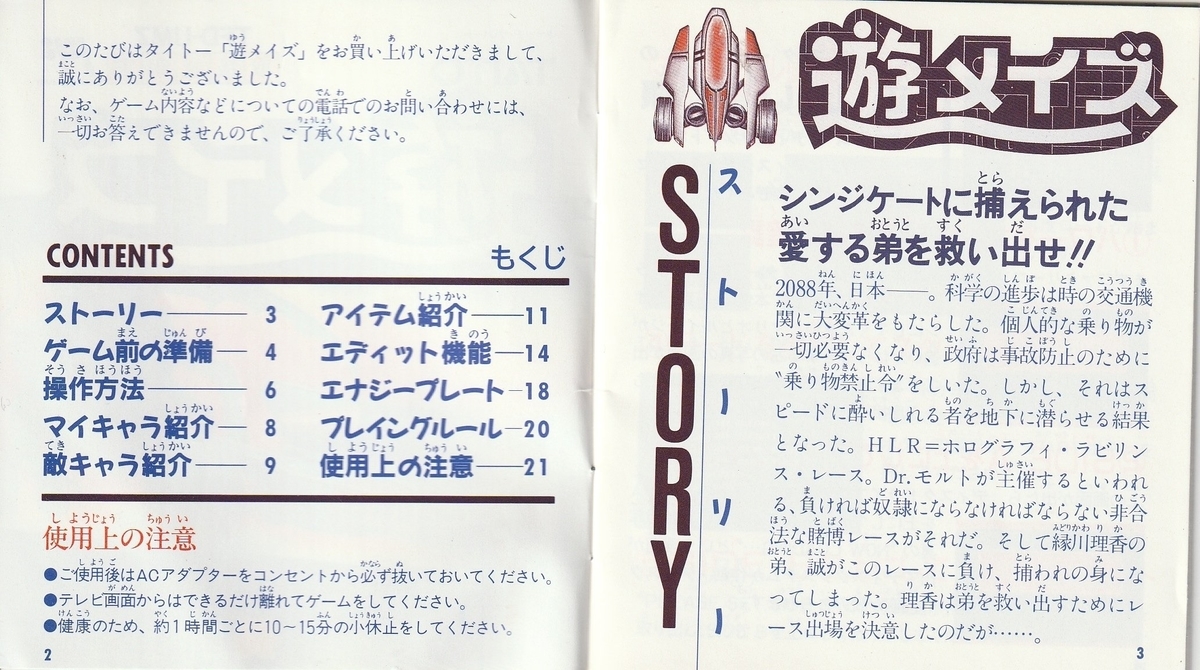 このたびはタイトー「遊メイズ」をお買い上げいただきまして、
誠にありがとうございました。
なお、ゲーム内容などについての電話でのお問い合わせには、
一切お答えできませんので、ご了承ください。
CONTENTS もくじ
ストーリー 3
ゲーム前の準備 4
操作方法 6
マイキャラ紹介 8
敵キャラ紹介 9
アイテム紹介 11
エディット機能 14
エナジープレート 18
プレイングルール 20
使用上の注意 21
使用上の注意
●ご使用後はACアダプターをコンセントから必ず抜いておいてください。
●テレビ画面からはできるだけ離れてゲームをしてください。
●健康のため、約1時間ごとに10〜15分の小休止をしてください。
2
遊メイズ
STORY
ストーリー
シンジケートに捕えられた
愛する弟を救い出せ!!
2088年、日本――。科学の進歩は時の交通機
関に大変革をもたらした。個人的な乗り物が
一切必要なくなり、政府は事故防止のために
"乗り物禁止令"をしいた。しかし、それはス
ピードに酔いしれる者を地下に潜らせる結果
となった。HLR=ホログラフィ・ラビリン
ス・レース。Dr.モルトが主催するといわれ
る、負ければ奴隷にならなければならない非合
法な賭博レースがそれだ。そして縁川理香の
弟、誠がこのレースに負け、捕われの身にな
ってしまった。理香は弟を救い出すためにレ
ース出場を決意したのだが……。
3